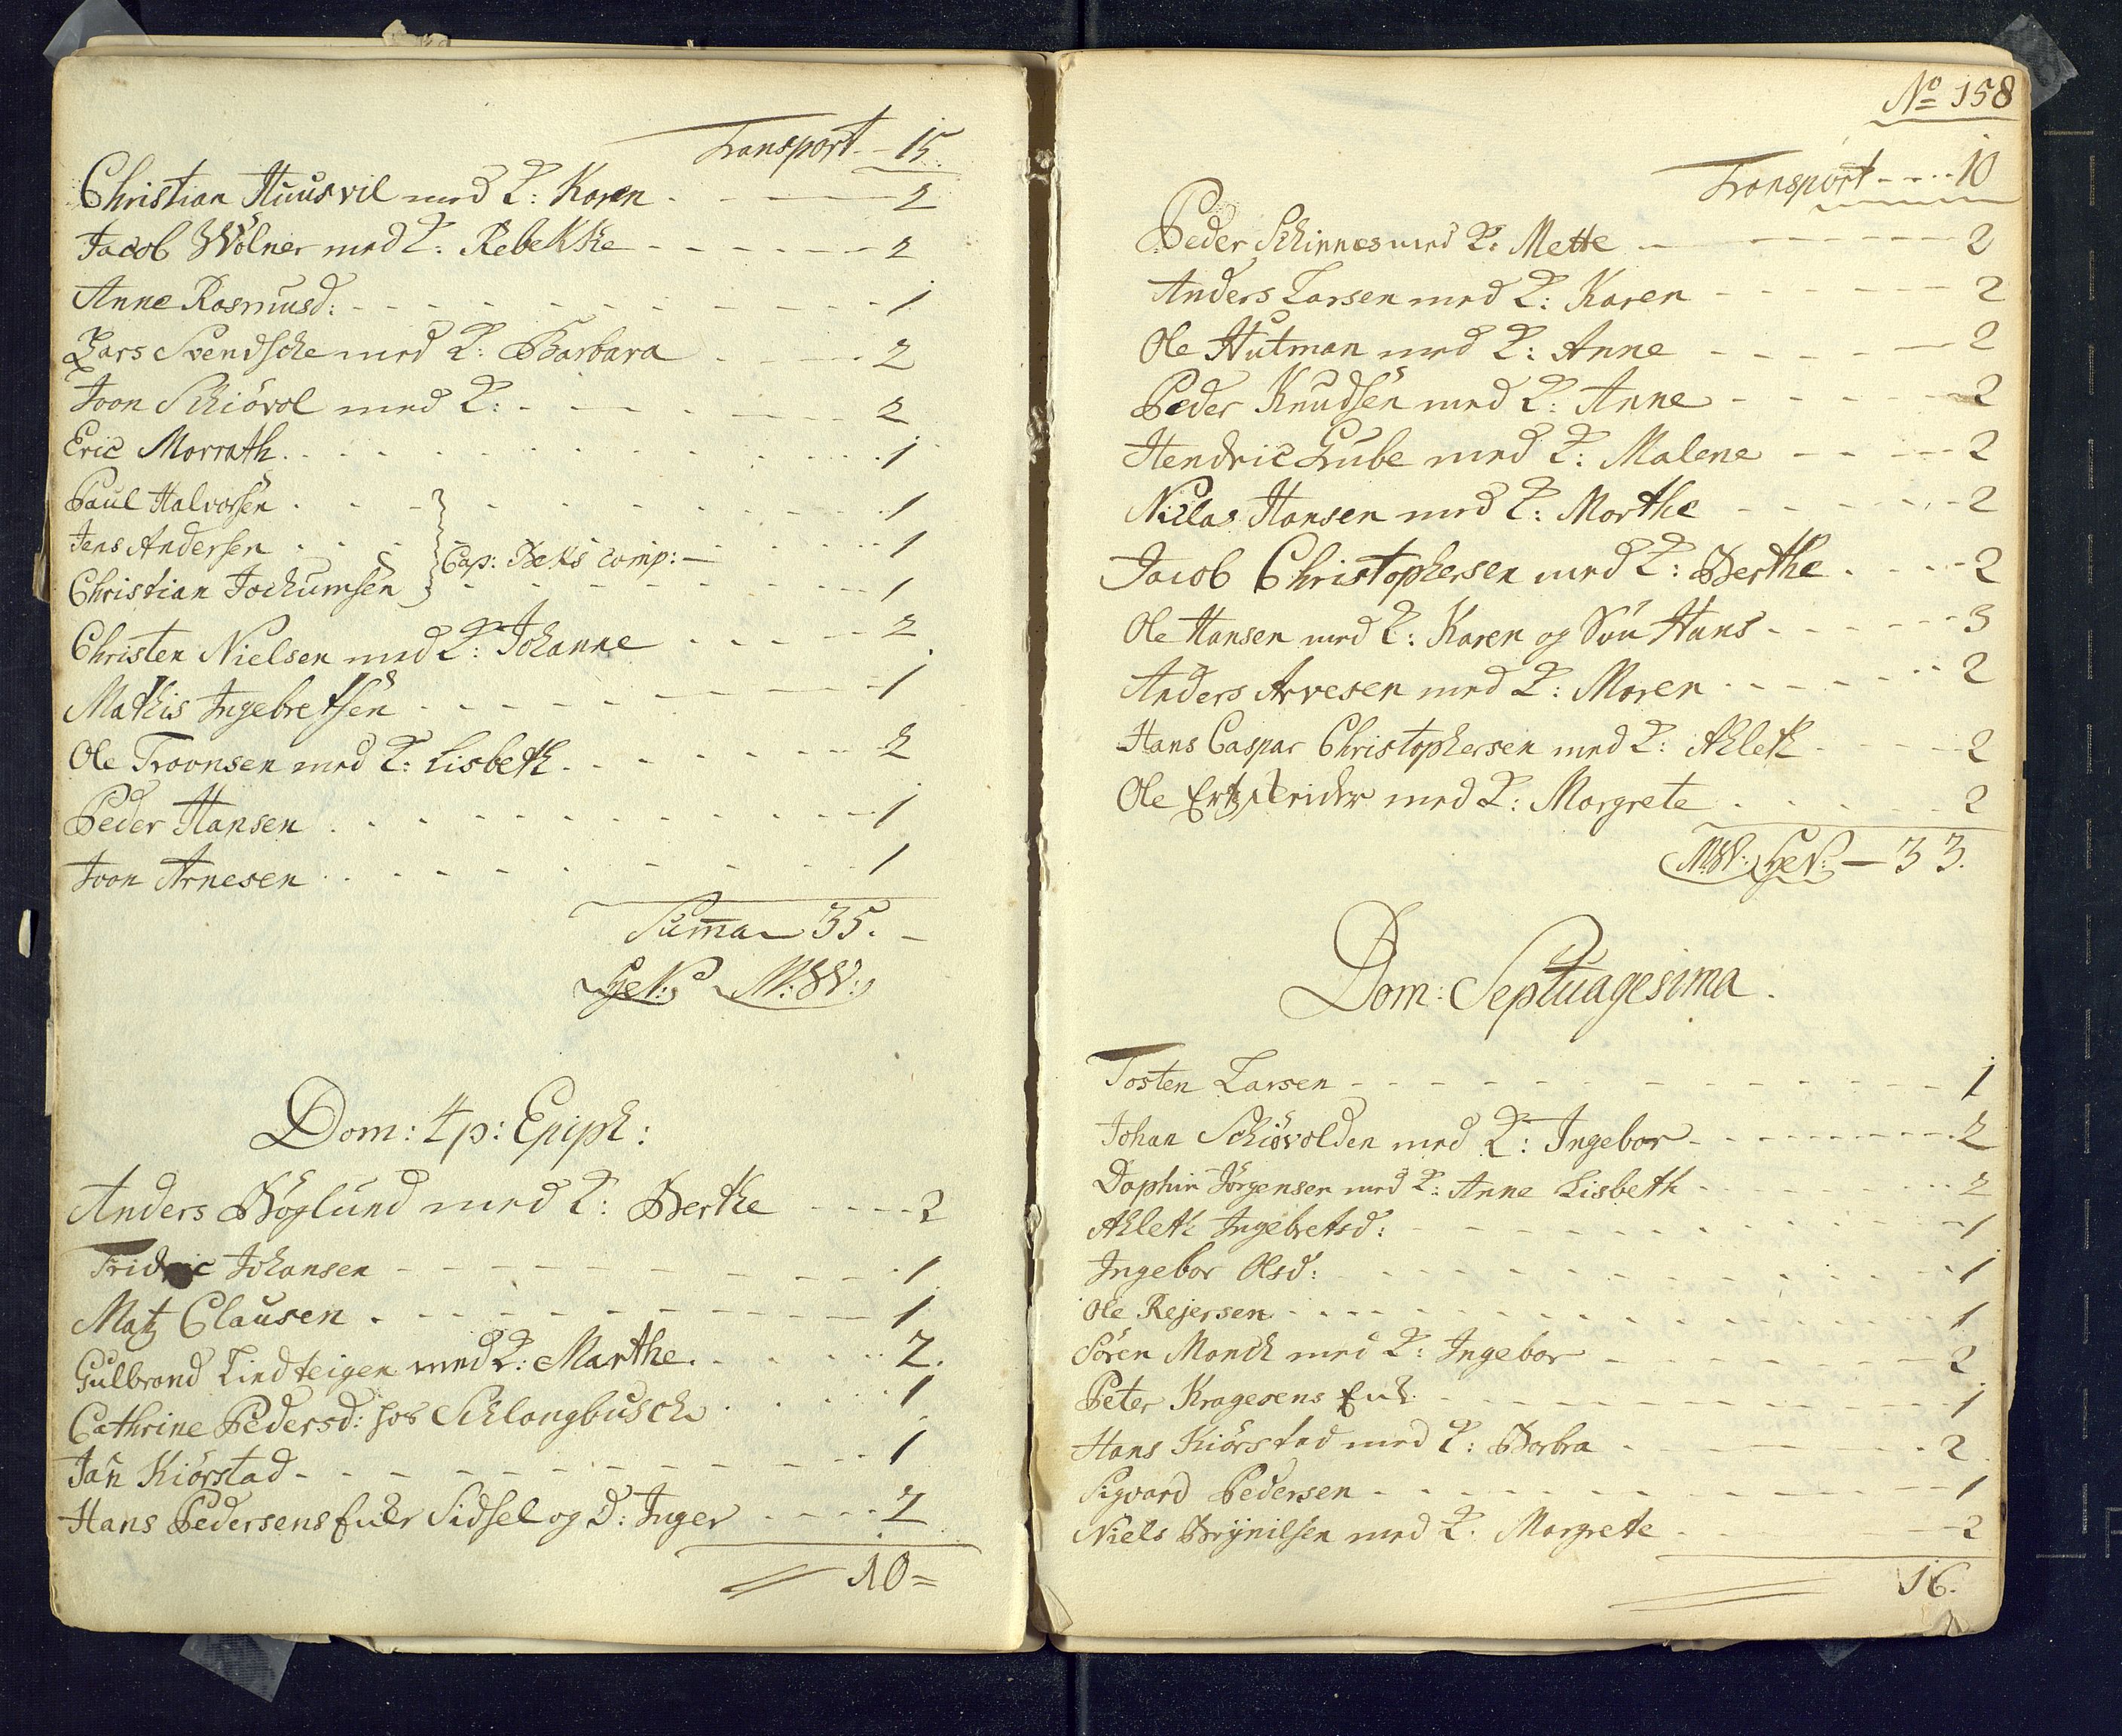 Transport - 15.
Christian Huusvil med K: Karen - 2
Jacob Wölner med K: Rebekke - 2
Anne Rasmusd: - 1
Lars Svendsche med K: Barbara - 2
Joon Schiövol med K: - 2
Eric Morrath - 1
Paul Halvorsen - 1
Jens Andersen - Cap: Beks comp: - 1
Christian Jochumsen - 1
Christen Nielsen med K: Johanne - 2
Mathis Ingebretsen - 1
Ole Troonsen med K: Lisbeth - 2
Peder Hansen - 1
Joon Arnesen - 1
Summa 35.
Dom: 4 p: Epiph:
Anders Böglund med K: Berthe - 2
Fridric Johansen - 1
Matz Clausen - 1
Gulbrand Lindteigen med K: Marthe - 2.
Cathrine Pedersd: hos Schlangbusch - 1
Jan Kiörstad - 1
Hans Pedersens Enke Sidsel og D: Inger - 2
10 =
No 158
Transport - 10
Peder Schinnes med K: Mette - 2
Anders Larsen med K: Karen - 2
Ole Hutman med K: Anne - 2
Peder Knudsen med K: Anne - 2
Hendric Grube med K: Malene - 2
Niclas Hansen med K: Marthe - 2
Jacob Christophersen med K: Berthe - 2
Ole Hansen med K: Karen og Sön Hans - 3
Anders Arvesen med K: Maren - 2
Hans Caspar Christophersen med K: Ahleth - 2
Ole med K: Margrete - 2
33.
Dom: Septuagesima.
Tosten Larsen - 1
Johan Schiövolden med K: Ingebor - 2
Dophin Jörgensen med K: Anne Lisbeth - 2
Ahleth Ingebretsd: - 1
Ingebor Olsd: - 1
Ole Rejersen - 1
Sören Monch med K: Ingebor - 2
Peter Kragesens Enk: - 1
Hans Kiörstad med K: Barbra - 2
Sigvard Pedersen - 1
Niels Brynilsen med K: Margrete - 2
16.